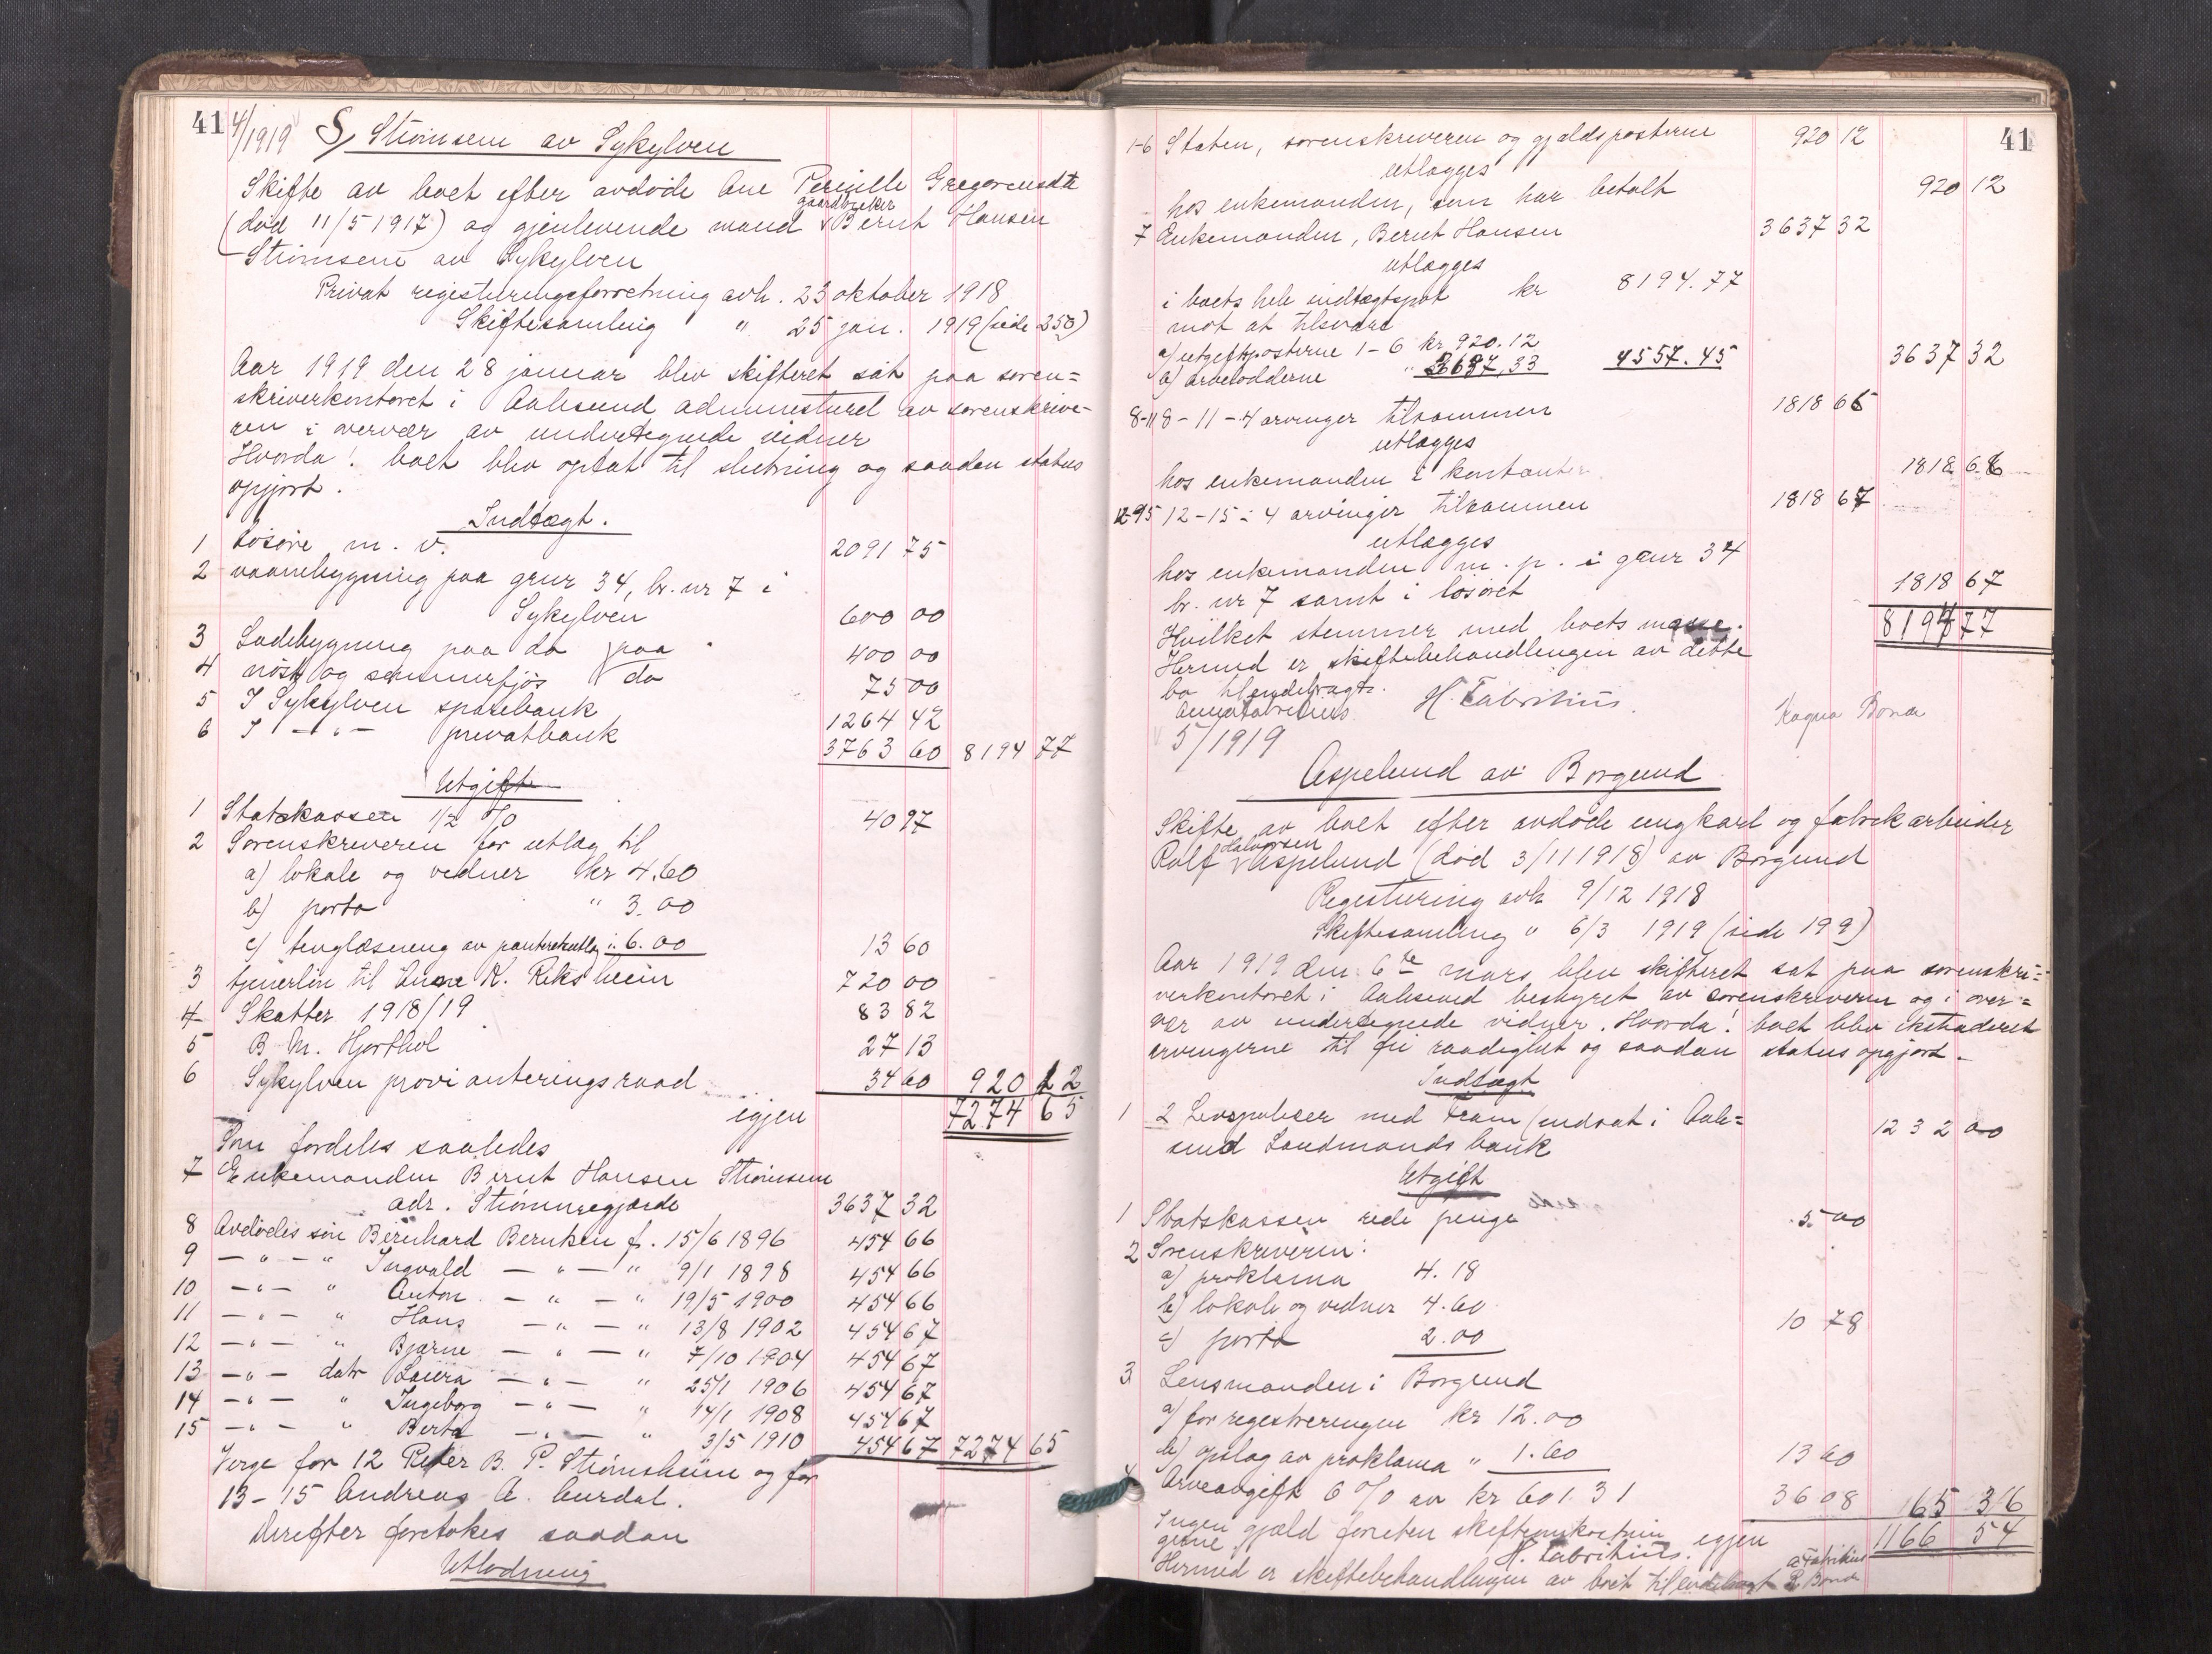 41
4/1919 S/ Strömsem av Sykylven
Skifte av boet efter avdöde Ane Pernille Gregoriusdtr
gaardbruker
(död 11/5 1917) og gjenlevende mand Bernt Hansen
Strömsem av Sykylven
Privat registreringsforretning avh. 23 oktober 1918
Skiftesamling " 25 jan. 1919 (side 250)
Aar 1919 den 28 januar blev skifteret sat paa soren=
skriverkontoret i Aalesund administreret av sorenskrive-
ren i overvær av undertegnede vidner
Hvorda! boet blev optat til slutning og saadan status
opgjort.
Indtægt.
1 Lösöre m. v. 2091 75
2 vaanebygning paa gnr 34, br. nr 7 i
Sykylven 600 00
3 Ladebygning paa do paa 400 00
4 nöst og sommerfjös do 75 00
5 I Sykylven sparebank 1264 42
6 I - " - privatbank 3763 60 8194 77
Utgift
1 Statskassen 1/2 % 40 97
2 Sorenskriveren for utlæg til
a) lokale og vidner kr 4.60
b) porto " 3.00
c) tinglæsning av panteretsutlæg " 6.00 13 60
3 tjenerlön til Anna K. Riksheim 720 00
4 Skatter 1918/19 83 82
5 B. M. Hjorthol 27 13
6 Sykylven provianteringsraad 34 60 920 12
igjen 7274 65
Som fordeles saaledes
7 Enkemanden Bernt Hansen Strömsem
adr. Strömmegjærde 3637 32
8 Avdödes sön Bernhard Berntsen f. 15/6 1896 454 66
9 - " - " Ingvald - " - " 9/1 1898 454 66
10 - " - " Anton - " - " 19/5 1900 454 66
11 - " - " Hans - " - " 13/8 1902 454 67
12 - " - " Bjarne - " - " 7/10 1904 454 67
13 - " - datr Laura - " - " 25/1 1906 454 67
14 - " - " Ingeborg - " - " 14/1 1908 454 67
15 - " - " Berta - " - " 3/5 1910 454 67 7274 65
Verge for 12 Peter B. P. Strömsheim og for
13-15 Andreas A. Aurdal.
Derefter foretokes saadan
Utlodning
41
1-6 Staten, sorenskriveren og gjældsposterne 920 12
utlægges
hos enkemanden, som har betalt 920 12
7 Enkemanden, Bernt Hansen 3637 32
utlægges
i boets hele indtægtspost kr 8194.77
mot at tilsvare
a) utgiftsposterne 1-6 kr 920.12
b) arvelodderne " 3637,33 4557.45 3637 32
8-11 8-11-4 arvinger tilsammen 1818 66
utlægges
hos enkemanden i kontanter 1818 66
12-15 12-15 = 4 arvinger tilsammen 1818 67
utlægges
hos enkemanden m. p. i gnr 34
br. nr 7 samt i lösöret 1818 67
Hvilket stemmer med boets masse. 8194 77
Hermed er skiftebehandlingen av dette
bo tilendebragt.
Anna Fabritius H. Fabritius. Ragna Bonde
5/1919
Aspelund av Borgund
Skifte av boet efter avdöde ungkarl og fabrikarbeider
Halvorsen
Rolf Aspelund (död 3/11 1918) av Borgund
Registrering avh 9/12 1918
Skiftesamling " 6/3 1919 (side 199)
Aar 1919 den 6te mars blev skifteret sat paa sorenskri=
verkontoret i Aalesund bestyret av sorenskriveren og i over=
vær av undertegnede vidner. Hvorda! boet blev ekstraderet
arvingerne til fri raadighet og saadan status opgjort.
Indtægt
1 2 Livspoliser med Fram (indsat i Aale=
sund Landmands bank 1232 00
Utgift
1 Statskassen rede penge 5.00
2 Sorenskriveren:
a) proklama 4.18
b) lokale og vidner 4.60
c) porto 2.00 10 78
3 Lensmanden i Borgund
a) for registreringen kr 12.00
b) opslag av proklama " 1.60 13 60
4 Arveavgift 6 % av kr 601.31 36 08 165 36
Ingen gjæld foruten skifteomkostnin
gerne. H. Fabritius. igjen 1166 54
Hermed er skiftebehandlingen av boet tilendebragt A Fabritius
R Bonde